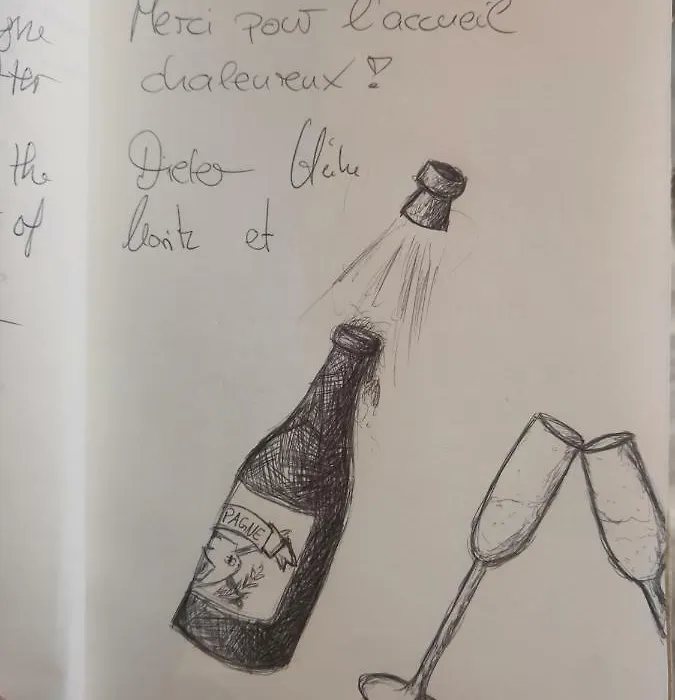 gne
ter
the
of
Merci pour l'accueil
chaleureux !
Dieter
et
PAGNE